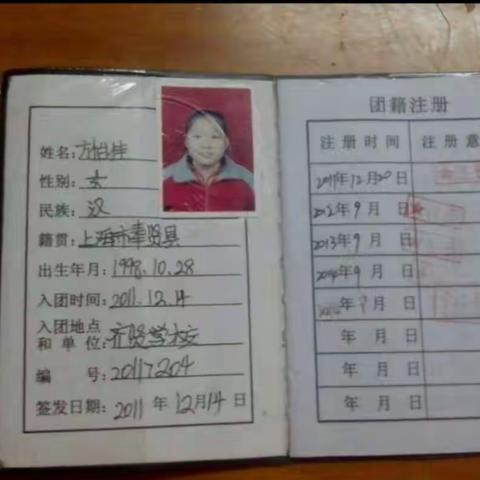 姓名:
性别:女
民族:汉
籍贯:上海市奉贤县
出生年月:1998.10.28
入团时间:2011.12.14
入团地点
和单位:齐贤学校
编 号:20117204
签发日期:2011年12月14日
团籍注册
注册时间 注册意
2011年12月20日
2012年9月 日
2013年9月 日
2014年9月 日
年9月 日
年 月 日
年 月 日
年 月 日